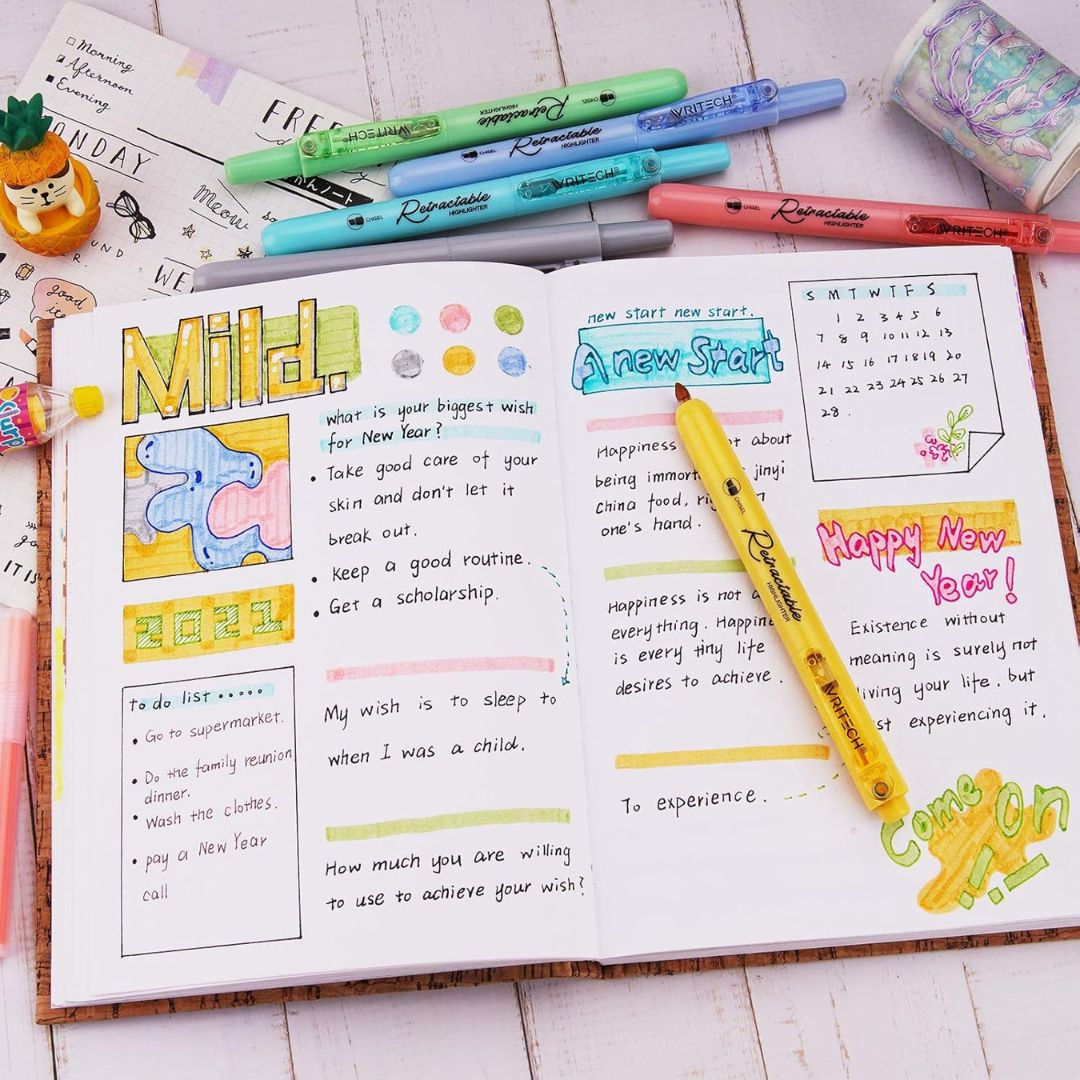 Morning
Afternoon
Evening
MONDAY
FREE
Meow
good
CHISEL Retractable HIGHLIGHTER WRITECH
CHISEL Retractable HIGHLIGHTER WRITECH
CHISEL Retractable HIGHLIGHTER WRITECH
CHISEL Retractable HIGHLIGHTER WRITECH
Slurp
Mild.
what is your biggest wish
for New Year?
• Take good care of your
skin and don't let it
break out.
• Keep a good routine.
• Get a scholarship.
2021
to do list .....
• Go to supermarket.
• Do the family reunion
dinner.
• Wash the clothes.
• pay a New Year
call
My wish is to sleep to
when I was a child.
How much you are willing
to use to achieve your wish?
new start new start.
A new Start
Happiness about
being jinyi
china food,
one's hand.
Happiness is not
everything.
is every tiny life
desires to achieve.
To experience.
CHISEL Retractable HIGHLIGHTER WRITECH
S M T W T F S
1 2 3 4 5 6
7 8 9 10 11 12 13
14 15 16 17 18 19 20
21 22 23 24 25 26 27
28.
Happy New
Year!
Existence without
meaning is surely not
living your life, but
experiencing it.
Come On